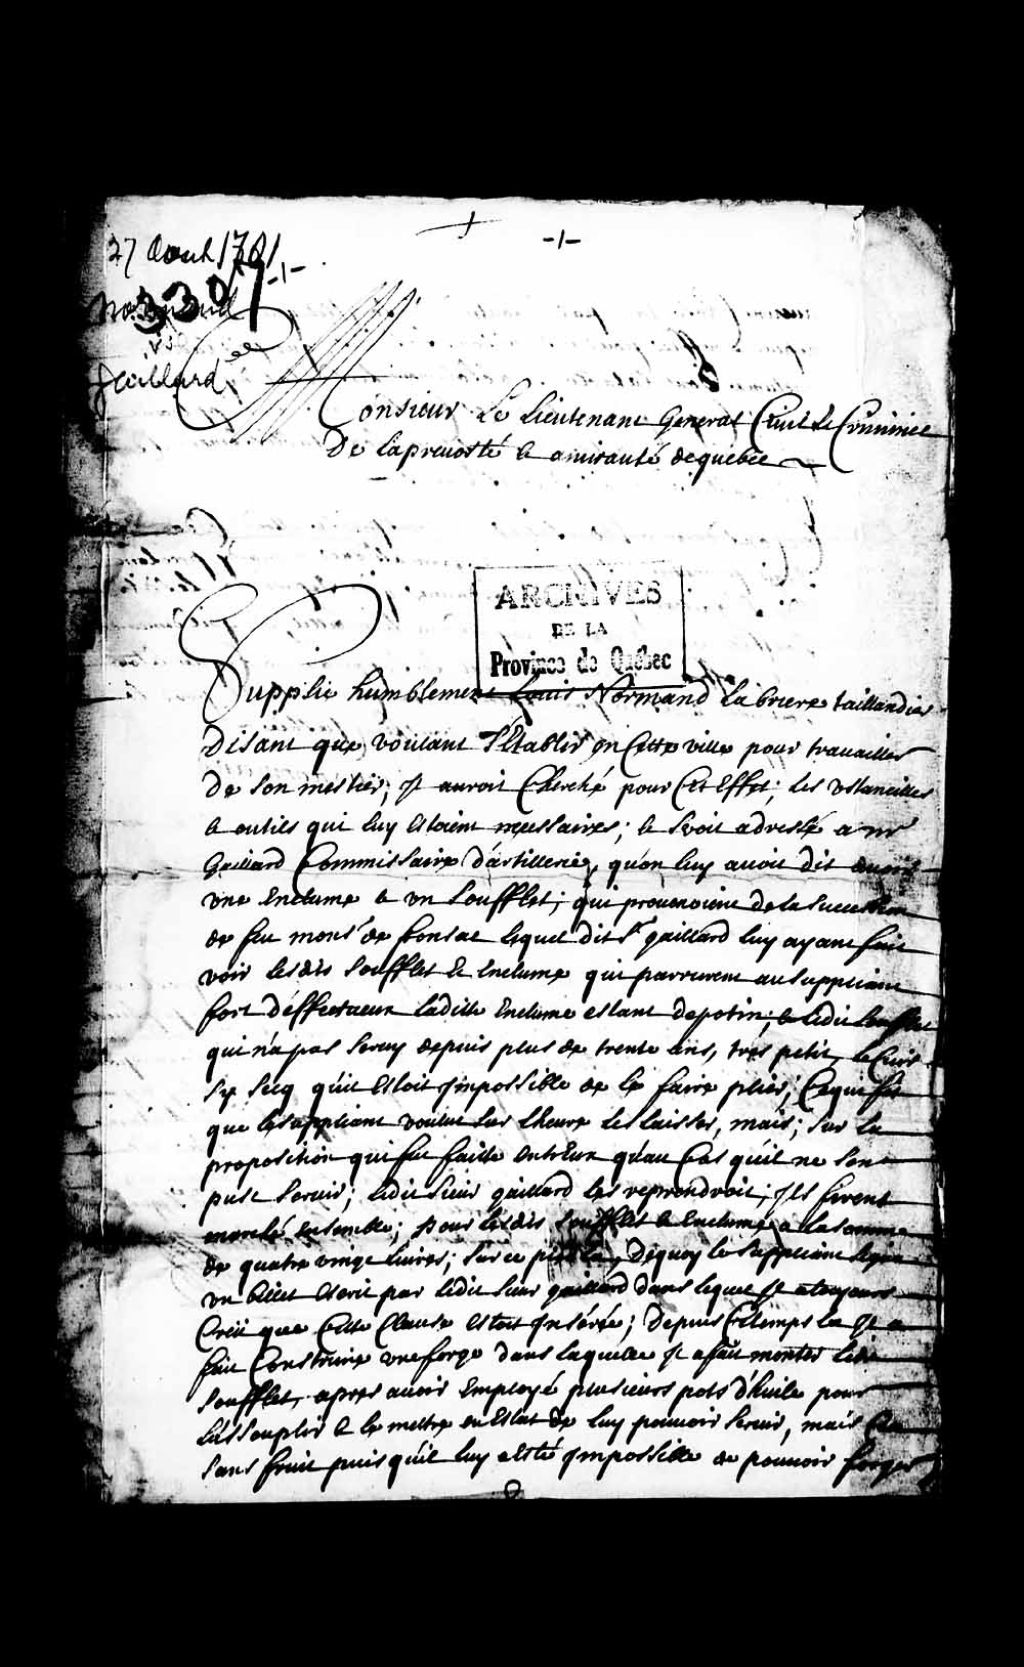 27 Aout 1701
-1-
-1-
3307
Normand
vs
Gaillard
Monsieur Le Lieutenant General Civil & Criminel
De La prevosté & amirauté de quebec
ARCHIVES
DE LA
Province de Québec
Supplie humblement Louis Normand La briere taillandier
Disant que voulant S'Etablir En Cette ville pour travailler
De son mestier, Il auroit Cherché pour Cet Effet, les Ustancilles
& outils qui luy Estoient necessaires; & seroit adressé a mr
Gaillard Commissaire d'artillerie, qu'on luy avoit dit avoir
une Enclume & un soufflet, qui provenoient de la succession
de feu mons. de fronsac lequel dit Sr gaillard luy ayant fait
voir lesdits soufflet & Enclume qui parurent au suppliant
fort déffectueux laditte Enclume estant de potin, & ledit soufflet
qui n'a pas servy depuis plus de trente ans, tres petit, le Cuir
sy secq qu'il Estoit Impossible de le faire plier; Ce qui fit
que le suppliant voulut sur l'heure les laisser, mais; sur la
proposition qui fut faitte entr'Eux qu'au Cas qu'il ne s'en
pust servir; ledit sieur gaillard les reprendroit, Ils firent
marché ensemble; pour lesdits soufflet & Enclume a la somme
de quatre vingt livres; sur ce Dequoy le suppliant signa
un billet Escrit par ledit sieur gaillard dans lequel Il a toujours
Creü que Cette Clause estoit Insérée; Depuis Ce temps la Il a
fait Construire une forge dans laquelle Il a fait monter ledit
soufflet, apres avoir Employé plusieurs pots d'huile pour
L'assouplir & le mettre en Estat de luy pouvoir servir, mais
sans fruit puis qu'il luy a Esté Impossible de pouvoir forger